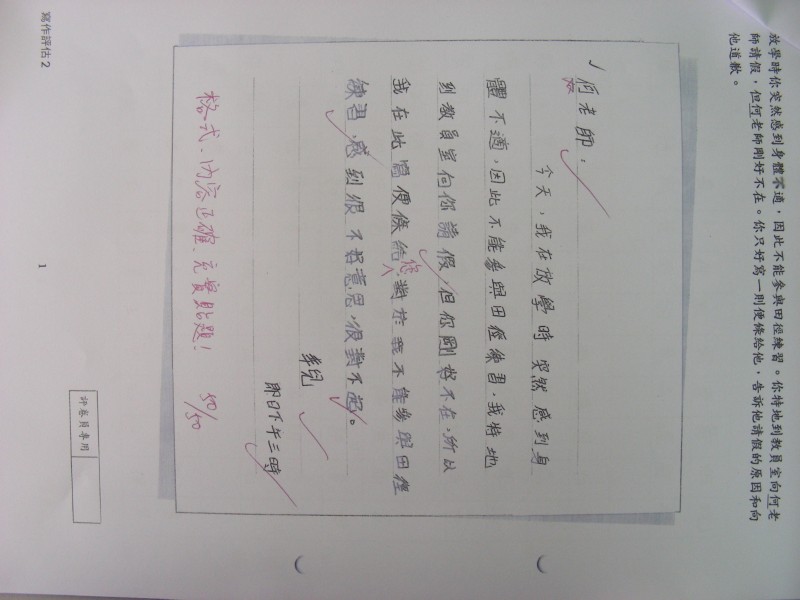 放學時你突然感到身體不適，因此不能參與田徑練習。你特地到教員室向何老
師請假，但何老師剛好不在。你只好寫一則便條給他，告訴他請假的原因和向
他道歉。
何老師：
今天，我在放學時突然感到身
體不適，因此不能參與田徑練習，我特地
到教員室向你請假，但你剛好不在，所以
我在此寫便條給您，對於我不能參與田徑
練習，感到很不好意思，很對不起。
即日下午三時
格式、內容正確、充實貼題！ 50/50
評卷員專用
寫作評估 2
1